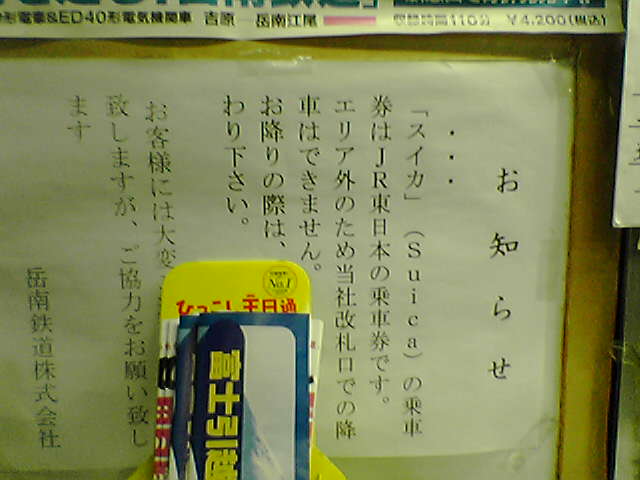 形電車&ED40形電気機関車 吉原 岳南江尾
収録時間110分 ¥4,200(税込)
お知らせ
・・・
「スイカ」(Suica)の乗車
券はJR東日本の乗車券です。
エリア外のため当社改札口での降
車はできません。
お降りの際は、
わり下さい。
お客様には大変
致しますが、ご協力をお願い致し
ます
岳南鉄道株式会社
No.1
ひっこし
富士引越